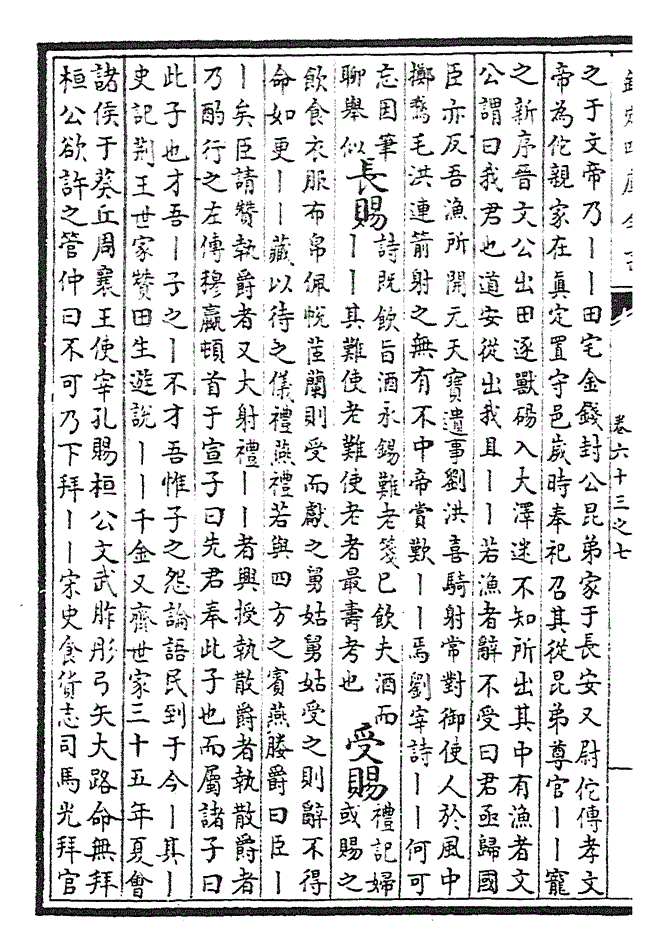 欽定四庫全書
卷六十三之七
之于文帝乃丨丨田宅金錢封公昆弟家于長安又尉佗傳孝文
帝為佗親家在真定置守邑歲時奉祀召其從昆弟尊官丨丨寵
之新序晉文公出田逐獸碭入大澤迷不知所出其中有漁者文
公謂曰我君也道安從出我且丨丨若漁者辭不受曰君亟歸國
臣亦反吾漁所開元天寶遺事劉洪喜騎射常對御使人於風中
擲鵞毛洪連箭射之無有不中帝賞歎丨丨焉劉宰詩丨丨何可
忘因筆
聊舉似
長賜
詩既飲旨酒永錫難老箋已飲夫酒而
丨丨其難使老難使老者最壽考也
受賜
禮記婦
或賜之
飲食衣服布帛佩帨茝蘭則受而獻之舅姑舅姑受之則辭不得
命如更丨丨藏以待之儀禮燕禮若與四方之賓燕媵爵曰臣丨
丨矣臣請贊執爵者又大射禮丨丨者興授執散爵者執散爵者
乃酌行之左傳穆嬴頓首于宣子曰先君奉此子也而屬諸子曰
此子也才吾丨子之丨不才吾惟子之怨論語民到于今丨其丨
史記荆王世家贊田生遊說丨丨千金又齊世家三十五年夏會
諸侯于葵丘周襄王使宰孔賜桓公文武胙彤弓矢大路命無拜
桓公欲許之管仲曰不可乃下拜丨丨宋史食貨志司馬光拜官